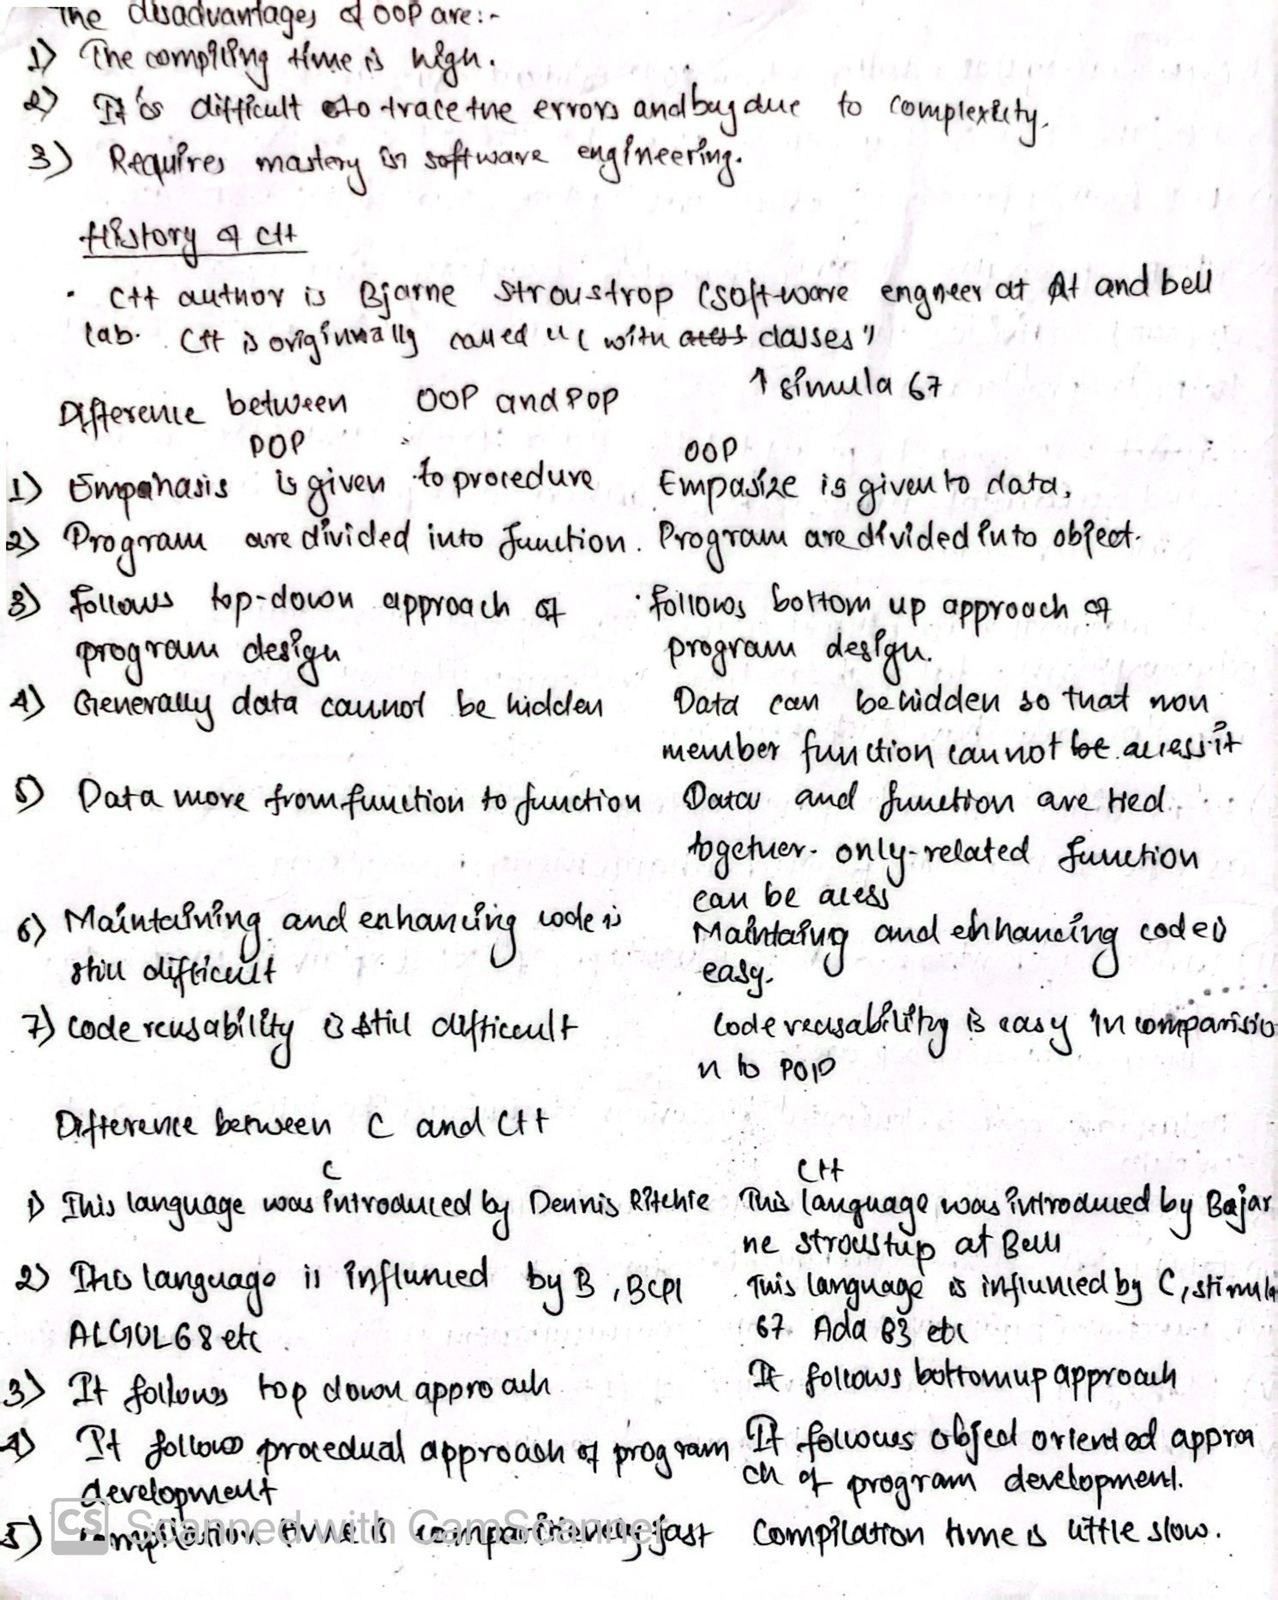 The disadvantages of OOP are:-
1) The compiling time is high.
2) It is difficult to trace the errors and bug due to complexcity.
3) Requires mastery in software engineering.
History of C++
· C++ author is Bjarne stroustrop (software engneer at At and bell
lab. C++ is originnally called "C with classes"
↑ simula 67
Difference between OOP and POP
POP OOP
1) Empahasis is given to procedure Empasize is given to data.
2) Program are divided into function. Program are divided into object.
3) follows top-down approach of · follows bottom up approach of
program design program design.
4) Generally data cannot be hidden Data can be hidden so that non
member function cannot be access it
5) Data more from function to function Data and function are tied
together. only-related function
can be acess
6) Maintaining and enhancing code is Maintaing and enhancing code is
still difficult easy.
7) code reusability is still difficult code reusability is easy in comparisio
n to POP
Difference between C and C++
C C++
1) This language was introduced by Dennis Ritchie This language was introduced by Bajar
ne stroustup at Bell
2) This language is influnced by B, BCPL This language is influnced by C, stimula
ALGOL68 etc 67 Ada 83 etc
3) It follows top down approach It follows bottom up approach
4) It follow procedual approach of program It follows object oriented approa
development ch of program development.
5) compilation time is comparitevely fast Compilation time is little slow.
CS Scanned with CamScanner